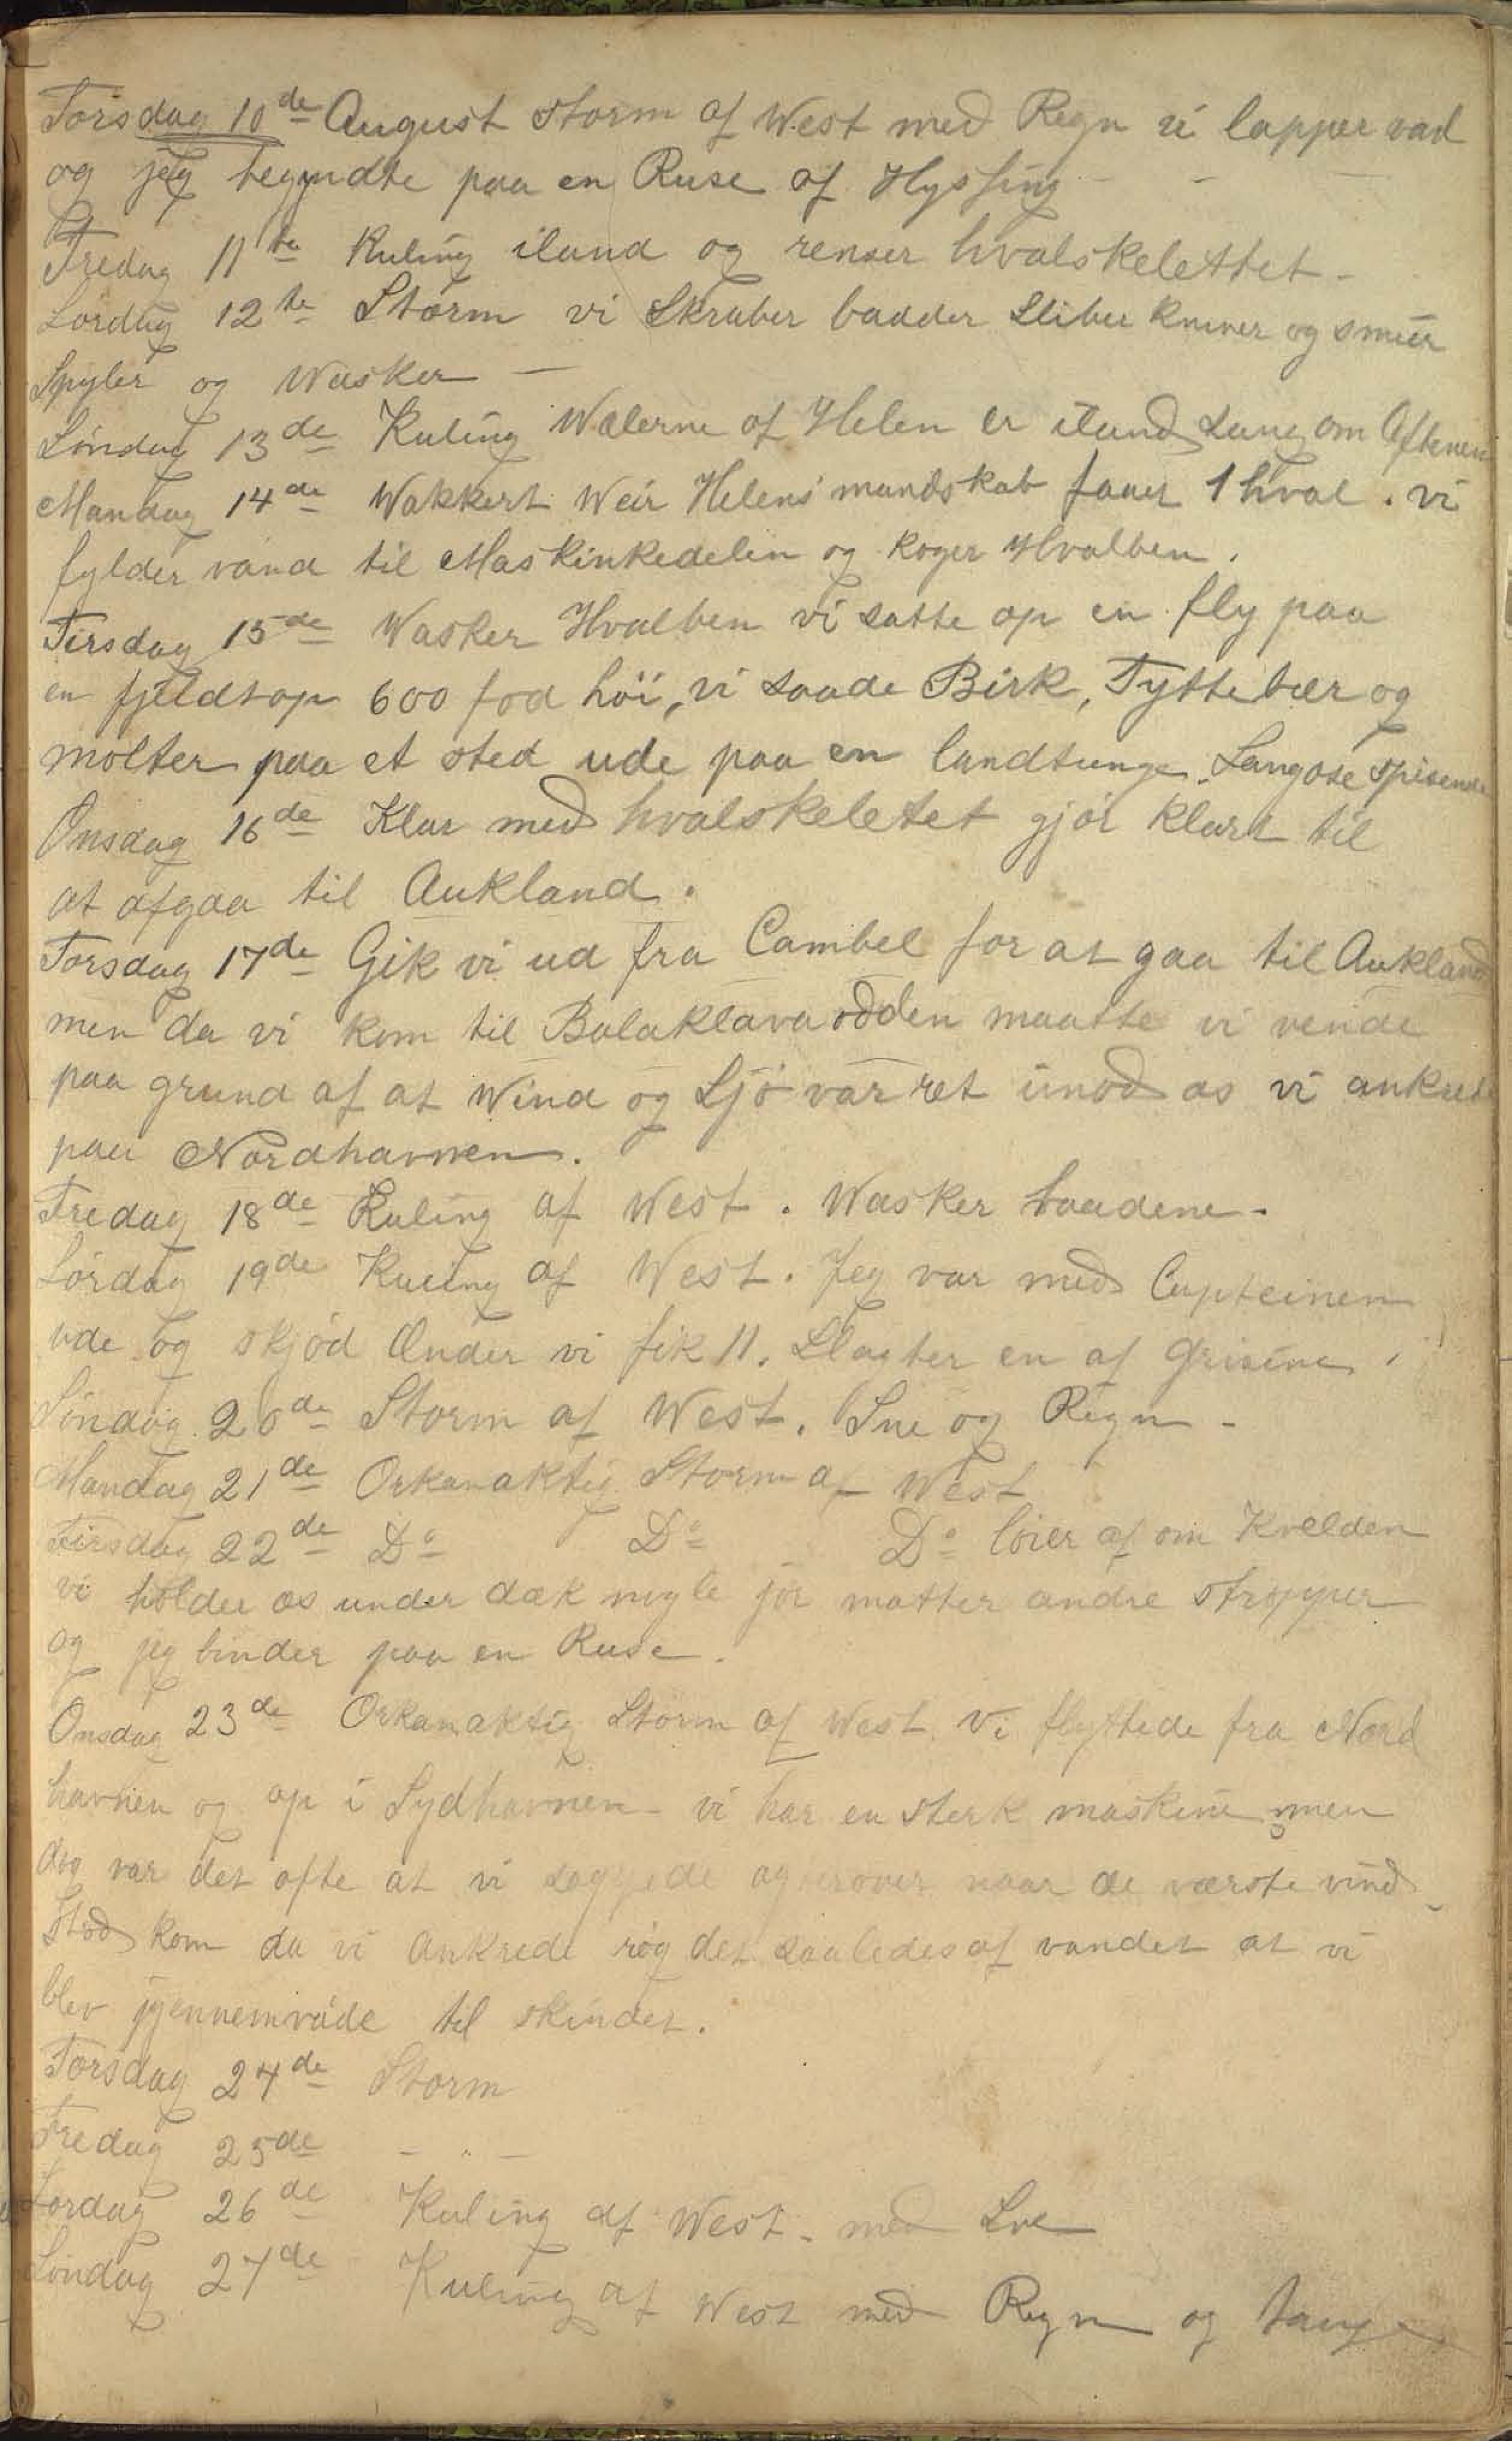 Torsdag 10de August Storm af West med Regn vi lapper vad
og jeg begyndte paa en Ruse af Hyssing
Fredag 11te Kuling iland og renser hvalskelettet -
Lordag 12te Storm vi Skraber baader Sliber kniver og smiør
Spyler og Wasker -
Söndag 13de Kuling Wælerne af Helen er iland Sang om Aftenen
Mandag 14de Wakkert Weir Helens mandskab faaer 1 hval. vi
fylder vand til Maskinkedelen og koger Hvalben.
Tirsdag 15de Wasker Hvalben vi satte op en fly paa
en fjeldtop 600 fod höi, vi saade Birk, Tyttebær og
molter paa et sted ude paa en landtunge.
Onsdag 16de Klar med hvalskeletet gjör klart til
at afgaa til Aukland.
Torsdag 17de Gik vi ud fra Cambel for at gaa til Aukland
men da vi kom til Balaklava odden maatte vi vende
paa grund af at Wind og Sjö var ret imod os vi ankrede
paa Nordhavnen.
Fredag 18de Kuling af West. Wasker baadene.
Lördag 19de Kuling af West. Jeg var med Capteinen
ude og skjöd Ænder vi fik 11. Slagter en af Grisene.
Söndag 20de Storm af West. Sne og Regn -
Mandag 21de Orkanaktig Storm af West
Tirsdag 22de Do Do Do löier af om Kvelden
vi holder os under dæk nogle jör matter andre stropper
og jeg binder paa en Ruse.
Onsdag 23de Orkanaktig Storm af West Vi flyttede fra Nord
havnen og op i Sydhavnen vi har en sterk maskine men
dog var det ofte at vi naar de værste vind
Stöd kom da vi ankrede róg det saaledes af vandet at vi
blev jgennemvåde til skindet.
Torsdag 24de Storm
Fredag 25de - " -
Lordag 26de Kuling af West - med Sne
Söndag 27de Kuling af West med Regn og